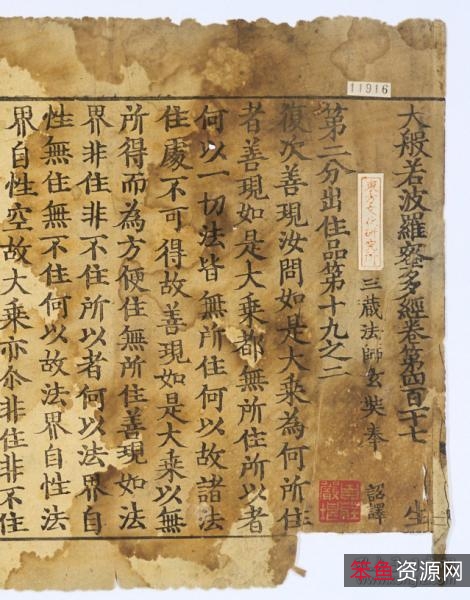 11916
大般若波羅蜜多經卷第四百一十七 生
東方文化研究所
三藏法師玄奘奉 詔譯
第二分出住品第十九之二
復次善現汝問如是大乘為何所住
者善現如是大乘都無所住所以者
何以一切法皆無所住何以故諸法
住處不可得故善現如是大乘以無
所得而為方便住無所住善現如法
界非住非不住所以者何以法界自
性無住無不住何以故法界自性法
界自性空故大乘亦尒非住非不住
笨鱼资源网